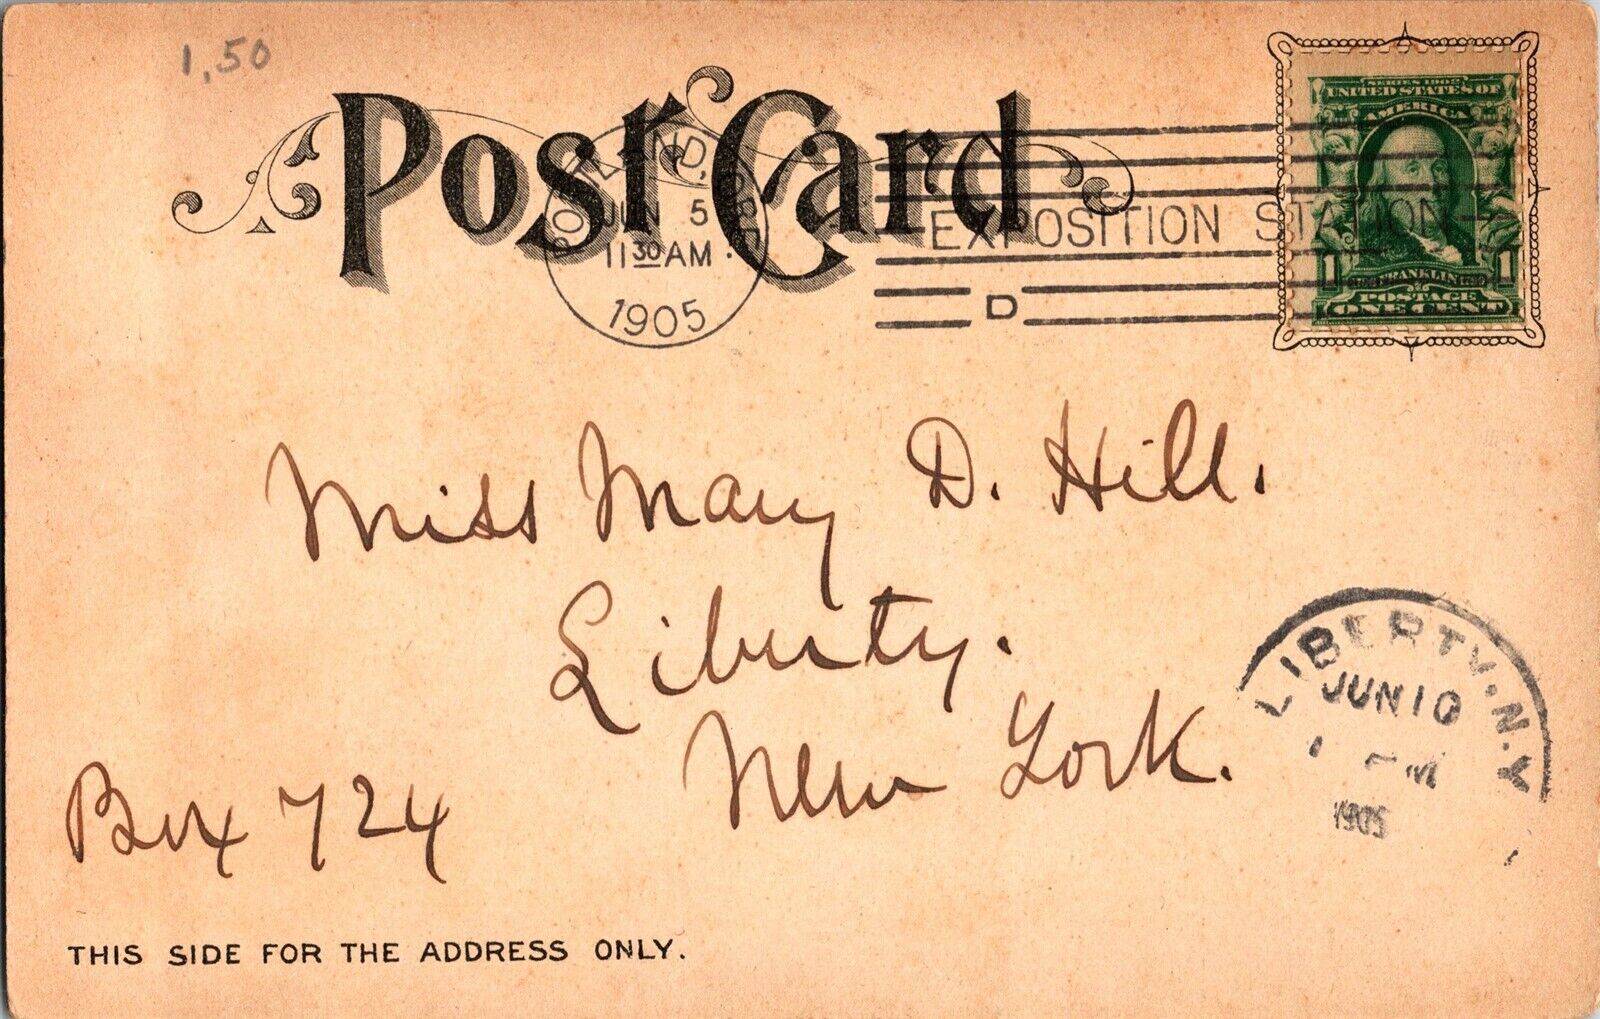 1,50
Post Card
PORTLAND, ORE.
JUN 5
11 30 AM
1905
EXPOSITION STATION
D
SERIES 1902
UNITED STATES OF
AMERICA
FRANKLIN
1 1
POSTAGE
ONE CENT
Miss Mary D. Hill.
Liberty.
New York.
Box 724
LIBERTY. N.Y.
JUN 10
1905
THIS SIDE FOR THE ADDRESS ONLY.